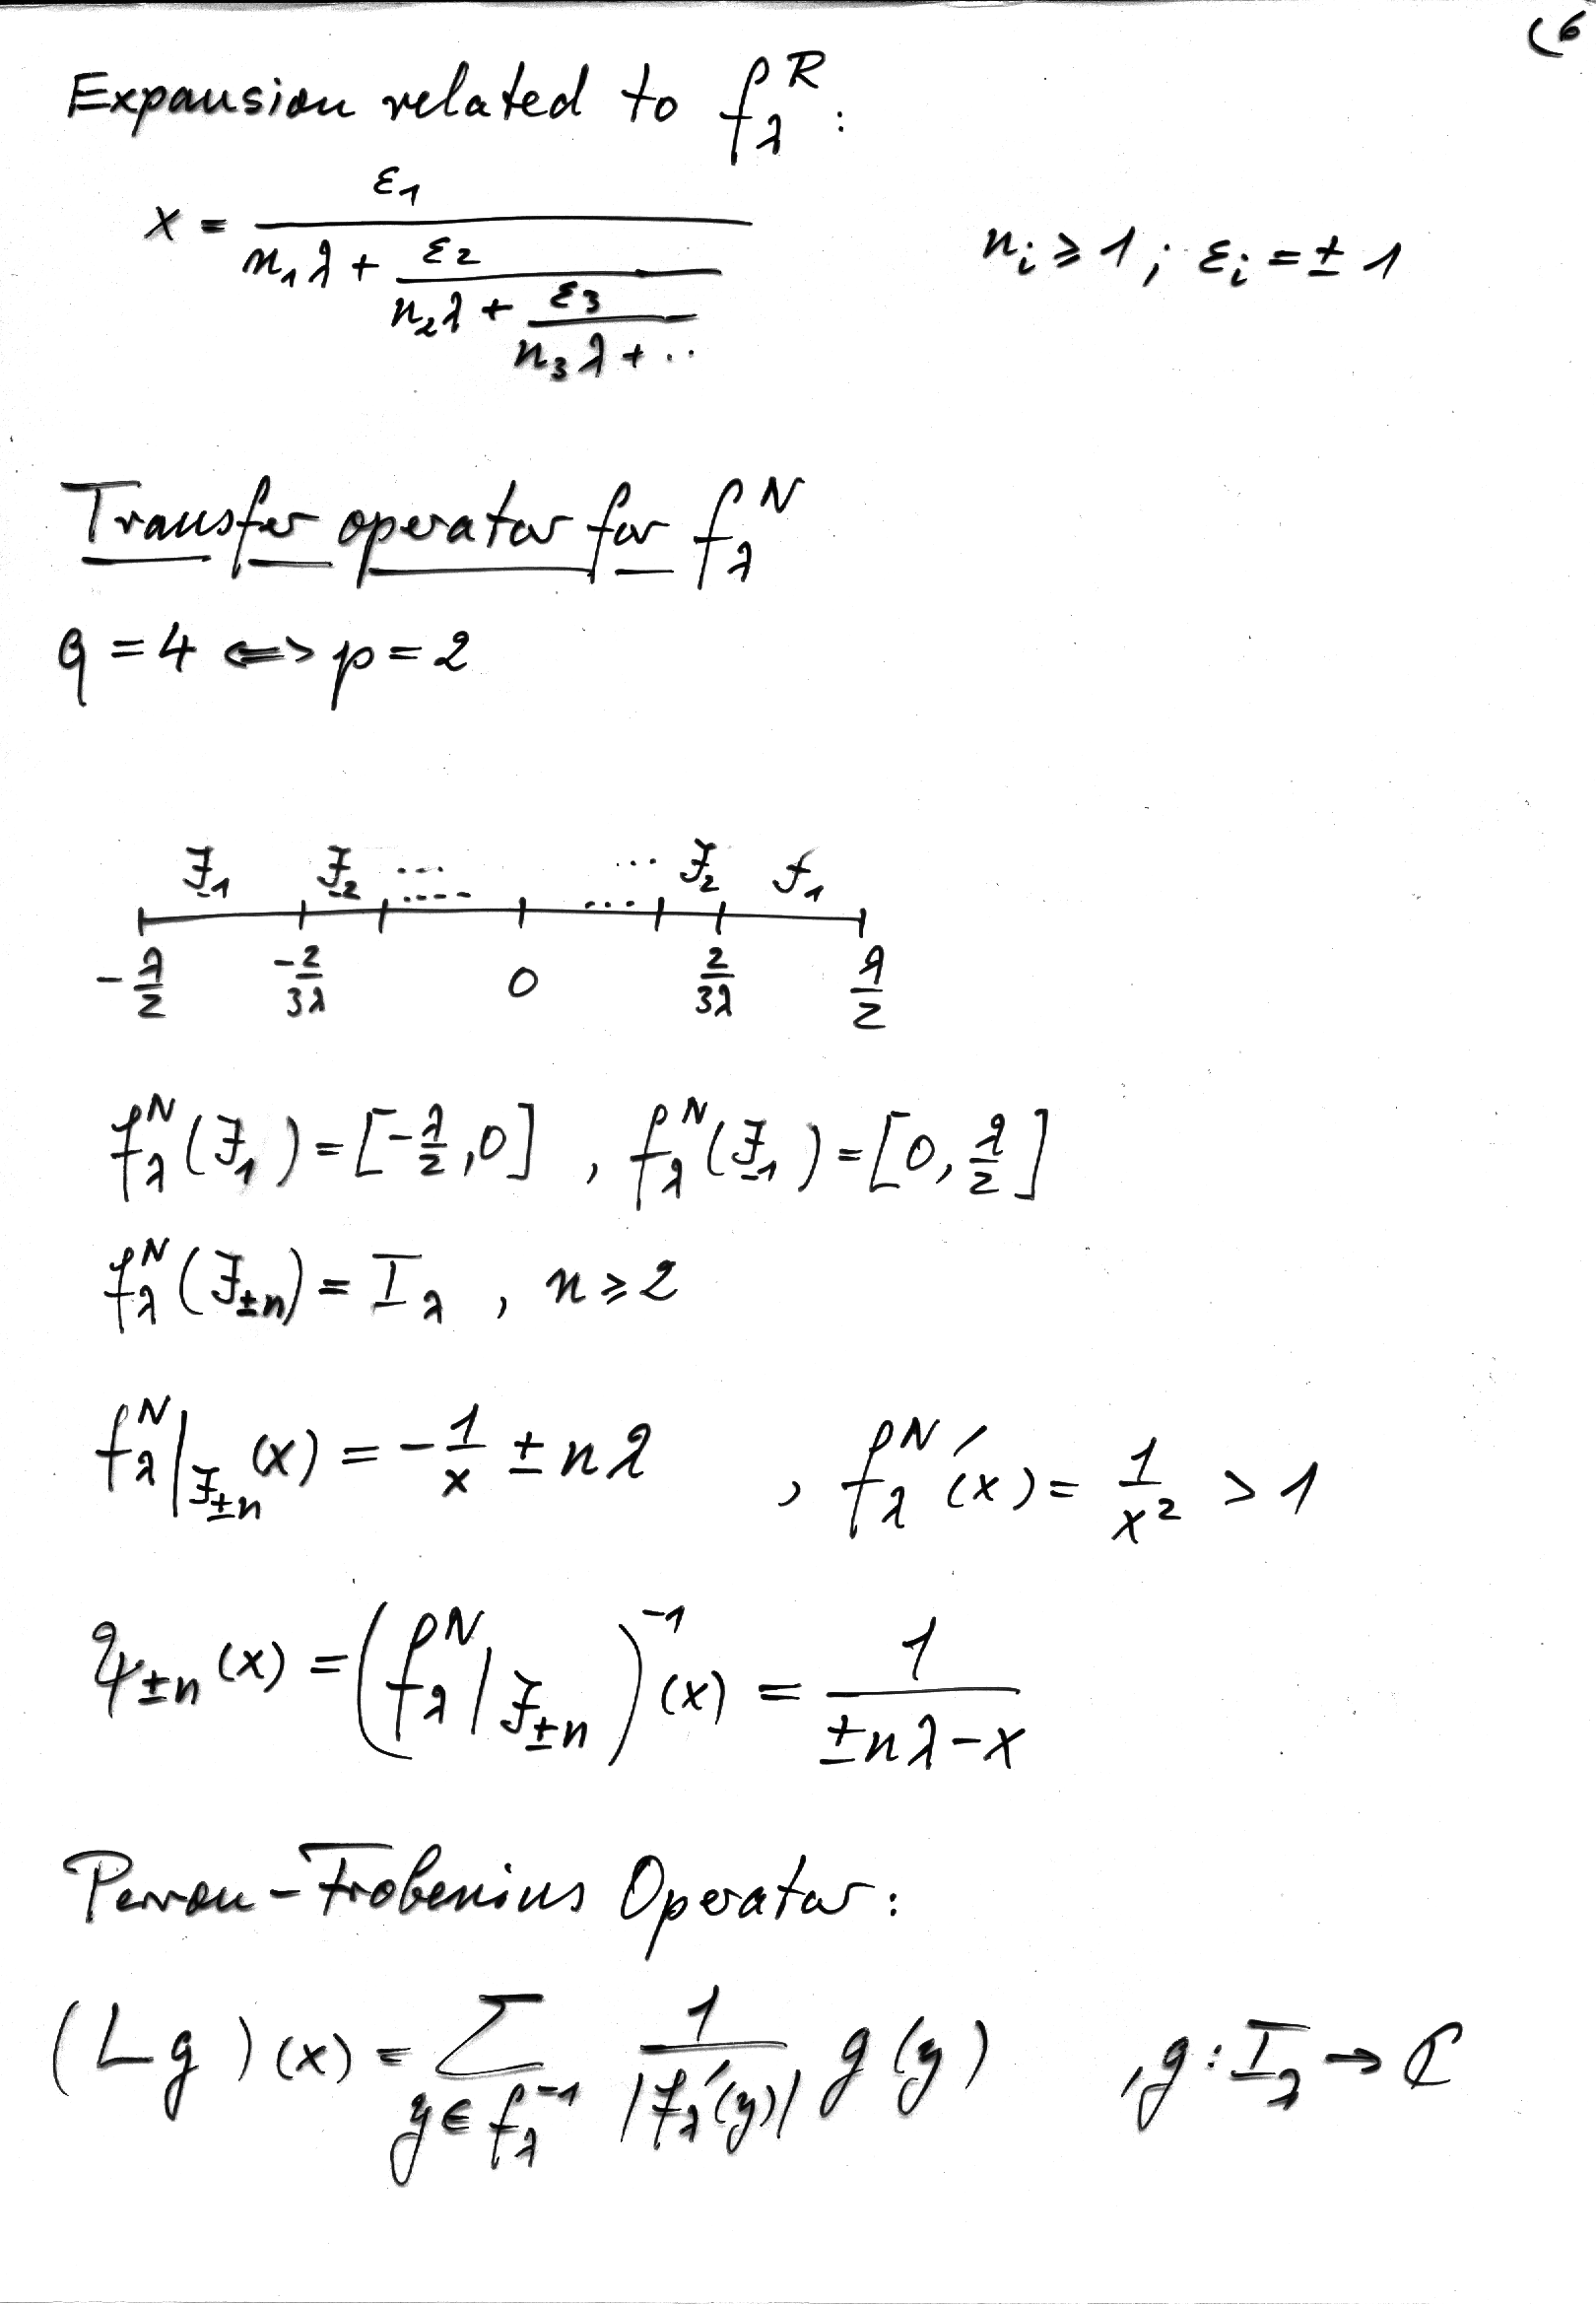 (6
Expansion related to f_λ^R :
x = ε₁ / (n₁λ + ε₂ / (n₂λ + ε₃ / (n₃λ + ..)))    nᵢ ≥ 1 ; εᵢ = ± 1
Transfer operator for f_λ^N
q = 4 <=> p = 2
J₋₁ J₋₂ ... ... J₂ J₁
-λ/2 -2/3λ 0 2/3λ λ/2
f_λ^N (J₁) = [-λ/2, 0] , f_λ^N (J₋₁) = [0, λ/2]
f_λ^N (J_±n) = I_λ , n ≥ 2
f_λ^N |_J_±n (x) = - 1/x ± nλ , f_λ^N ′(x) = 1/x² > 1
ϑ_±n (x) = (f_λ^N |_J_±n)^-1 (x) = 1 / (±nλ - x)
Perron-Frobenius Operator:
(Lg)(x) = Σ_{y ∈ f_λ^-1} 1/|f_λ′(y)| g(y) , g : I_λ → ℂ